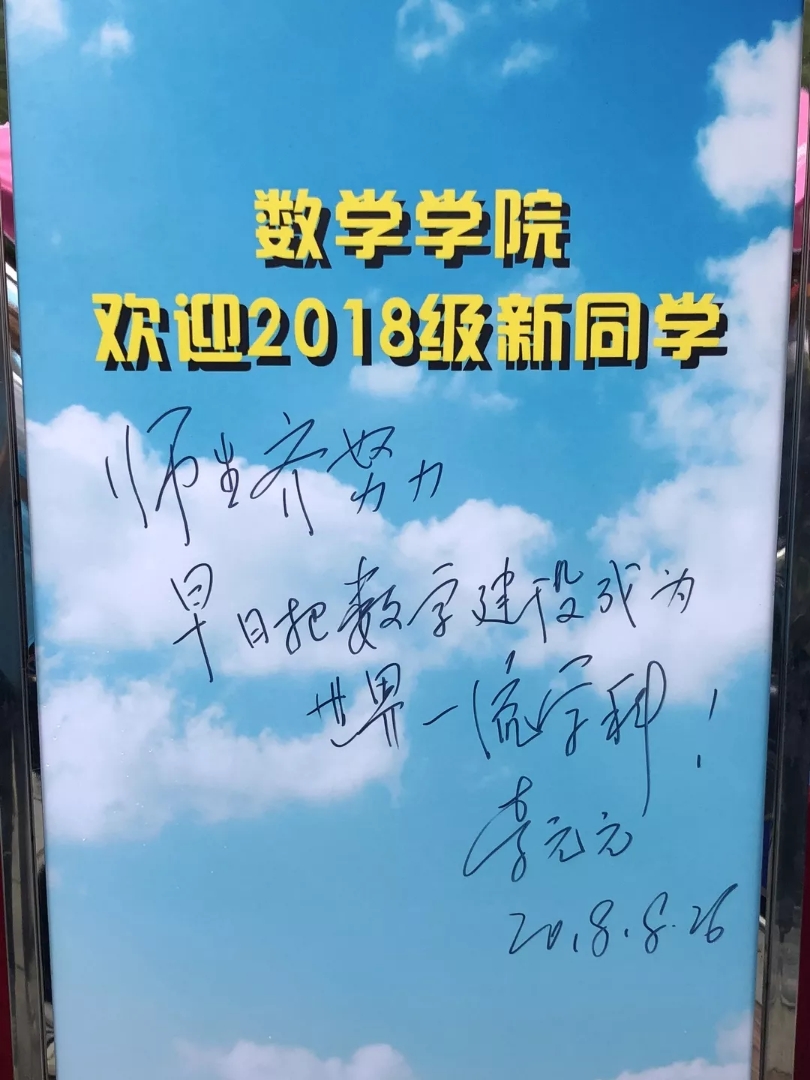 数学学院
欢迎2018级新同学
师生齐努力
早日把数学建设成为
世界一流学科！
李元元
2018.8.26